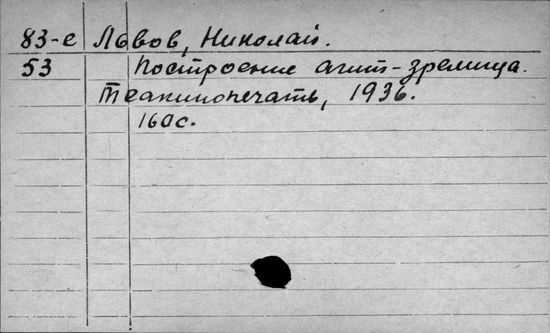 83-е Львов, Николай.
53 Построение агит-зрелища.
Теакинопечать, 1936.
160с.